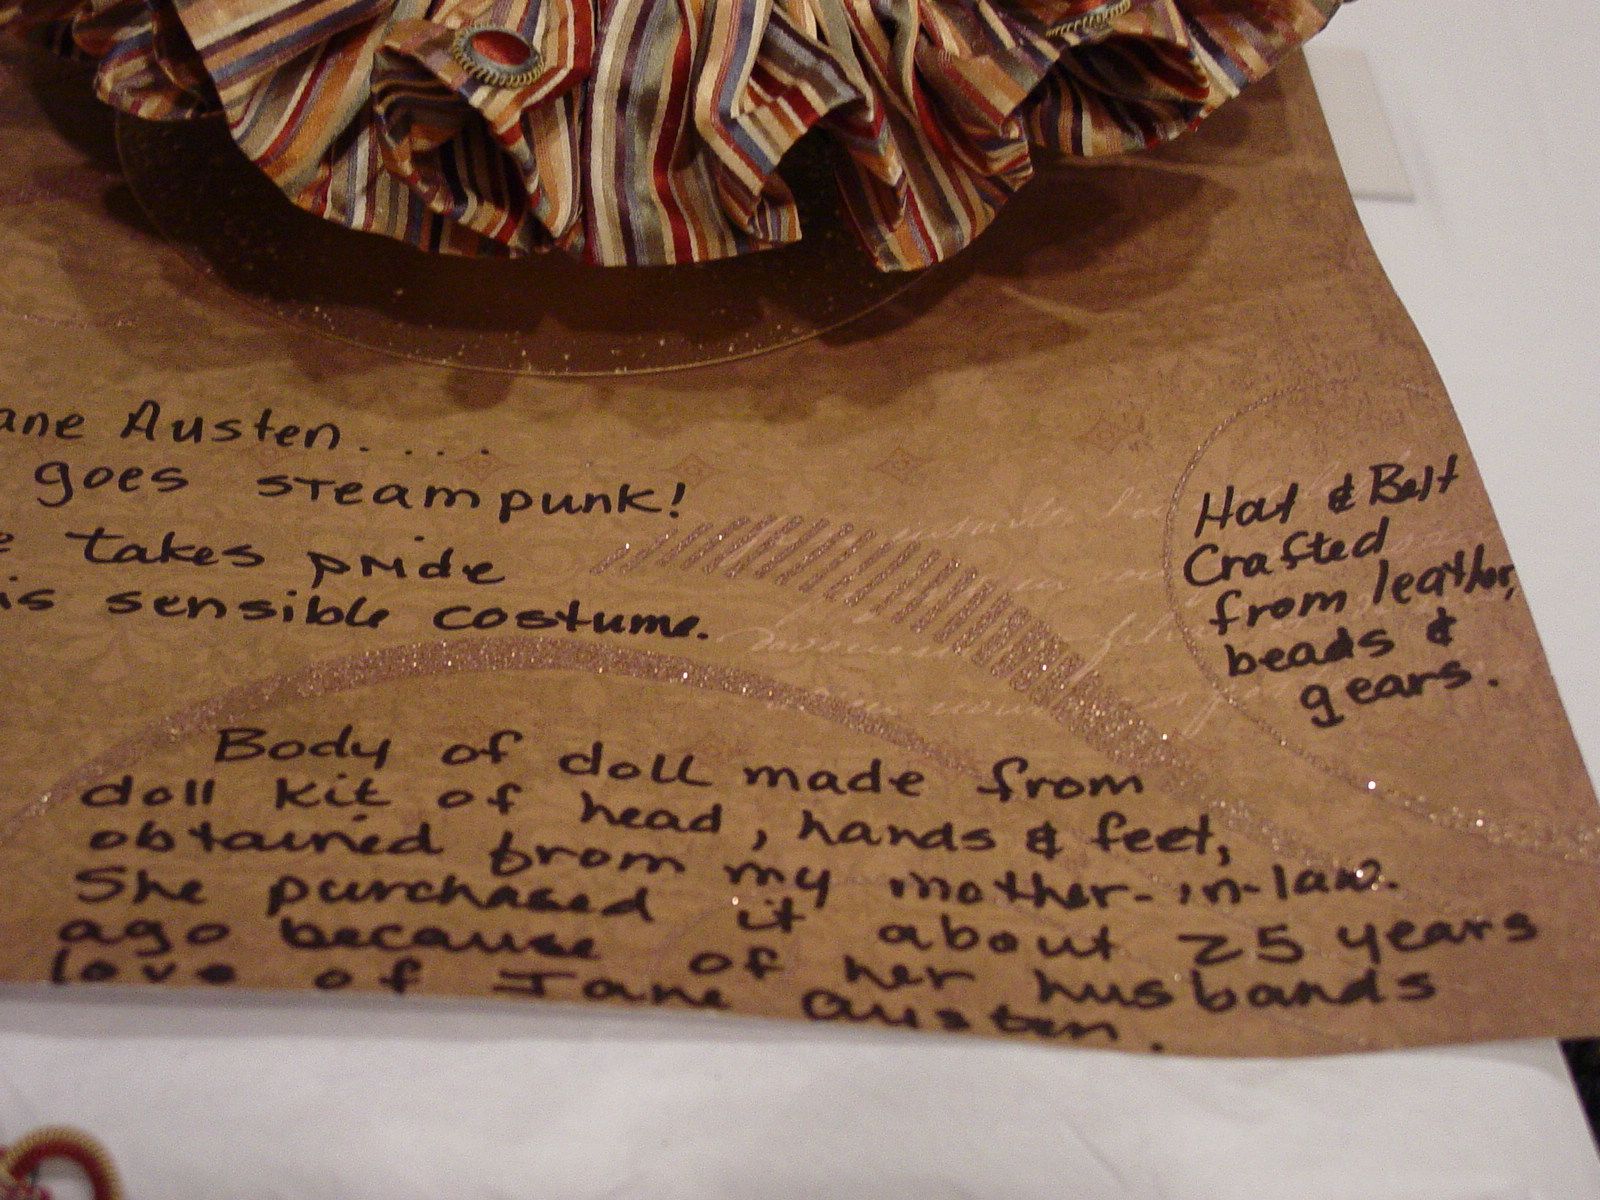 ane Austen.....
goes steampunk!
e takes pride
is sensible costume.
Hat & Belt
Crafted
from leather,
beads &
gears.
Body of doll made from
doll kit of head, hands & feet,
obtained from my mother-in-law.
She purchased it about 25 years
ago because of her husbands
love of Jane Austen.